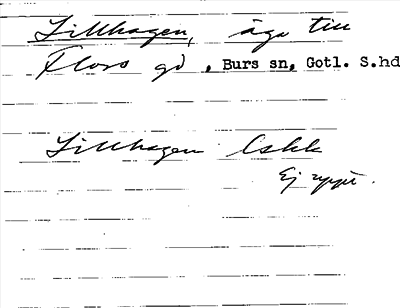 Lillhagen, äga till
Flors gd, Burs sn, Gotl. S.hd
Lillhagen Cskk
Ej uppt.